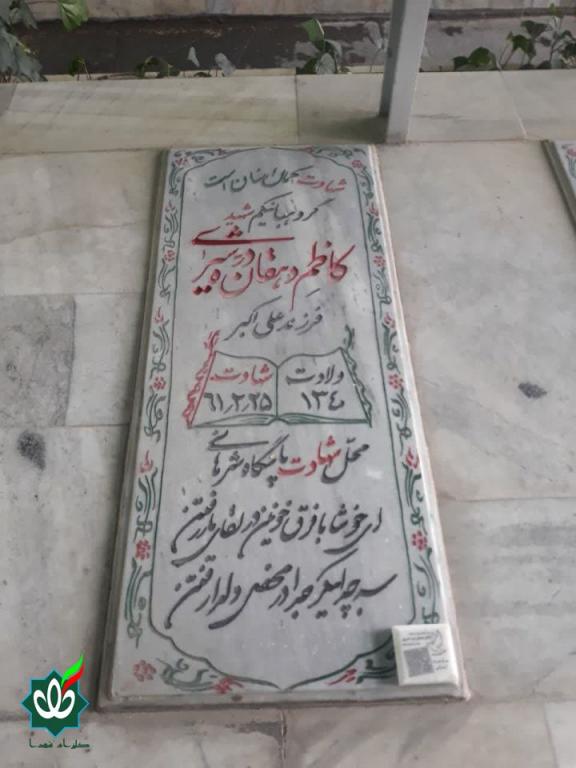 شهادت کمال انسان است
گروهبانیکم شهید
کاظم دهقان دره شیری
فرزند علی اکبر
ولادت شهادت
۱۳۴۰ ۶۱٫۲٫۲۵
محل شهادت پاسگاه شرهانی
ای خوشا با فرق خونین در لقای یار رفتن
سر جدا پیکر جدا در محفل دلدار رفتن
گلزار شهدا